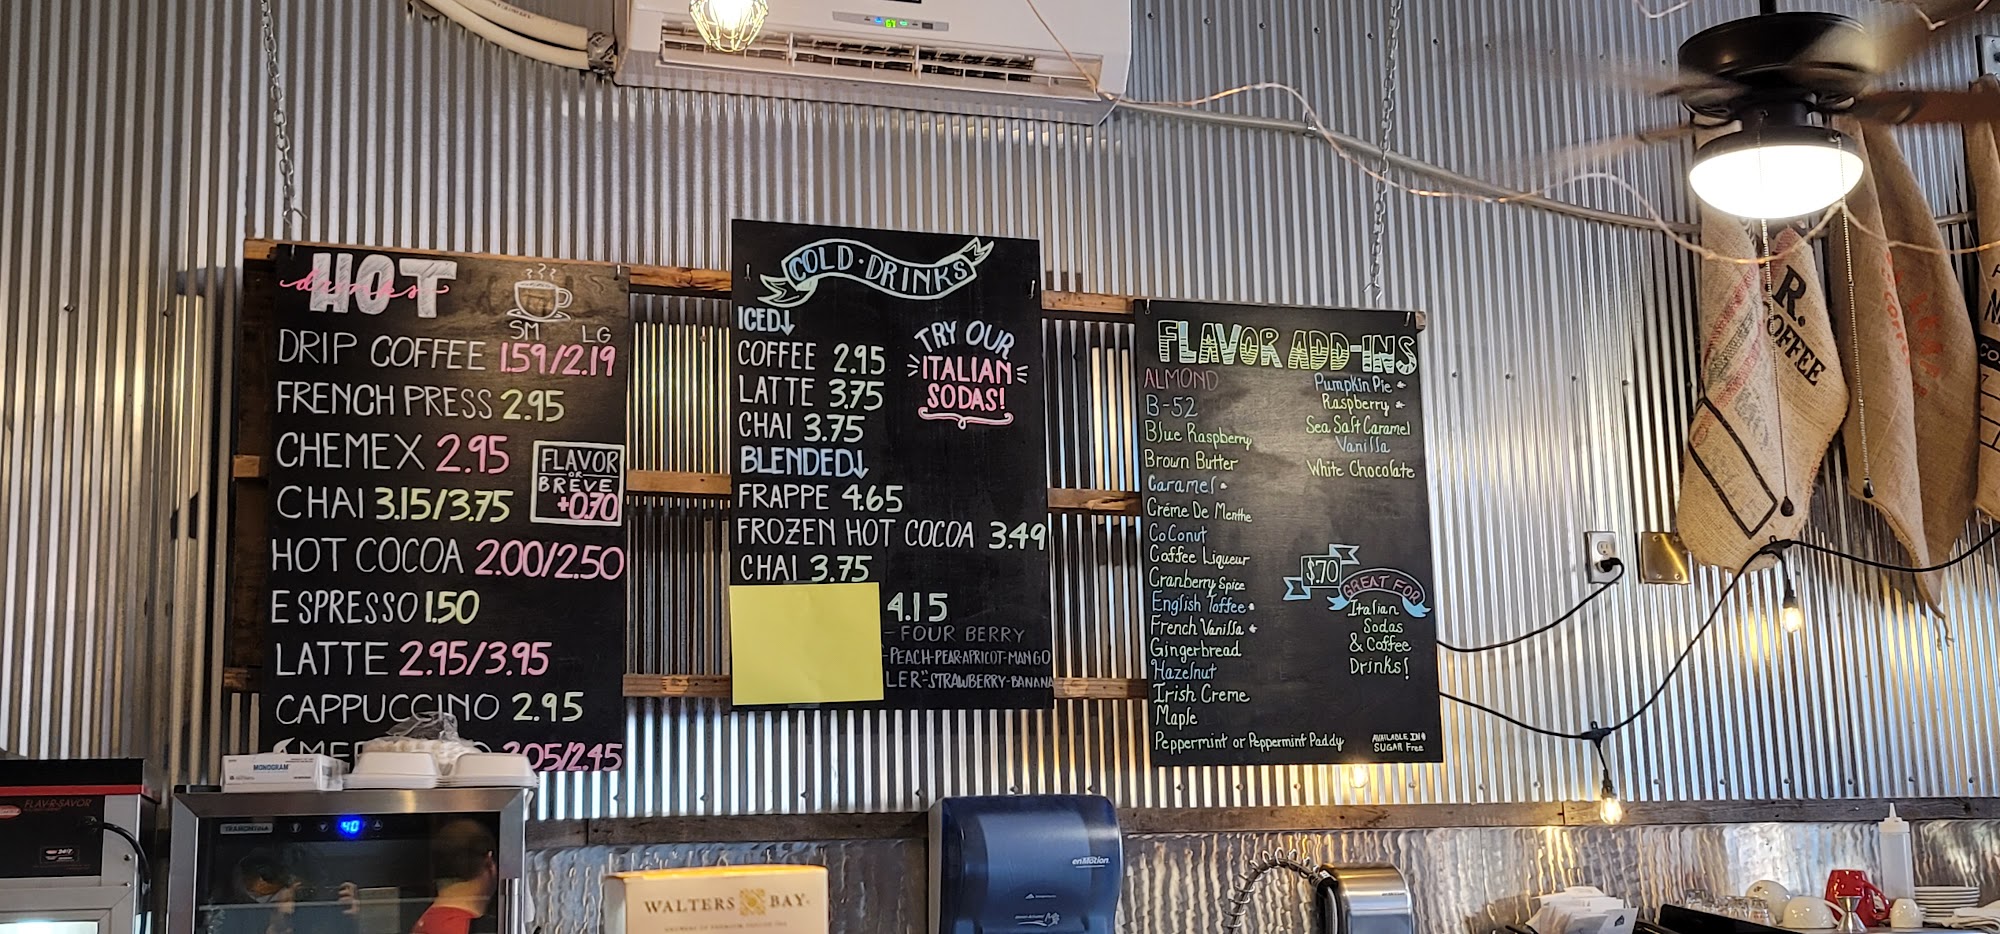 HOT
drinks
SM LG
DRIP COFFEE 1.59/2.19
FRENCH PRESS 2.95
CHEMEX 2.95
CHAI 3.15/3.75
HOT COCOA 2.00/2.50
ESPRESSO 1.50
LATTE 2.95/3.95
CAPPUCCINO 2.95
FLAVOR
OR
BREVE
+0.70
COLD · DRINKS
ICED↓
COFFEE 2.95
LATTE 3.75
CHAI 3.75
BLENDED↓
FRAPPE 4.65
FROZEN HOT COCOA 3.49
CHAI 3.75
4.15
- FOUR BERRY
-PEACH-PEAR-APRICOT-MANGO
LER" STRAWBERRY-BANANA
TRY OUR
ITALIAN
SODAS!
FLAVOR ADD-INS
ALMOND
B-52
Blue Raspberry
Brown Butter
Caramel *
Créme De Menthe
CoConut
Coffee Liqueur
Cranberry Spice
English Toffee *
French Vanilla *
Gingerbread
Hazelnut
Irish Creme
Maple
Peppermint or Peppermint Paddy
Pumpkin Pie *
Raspberry *
Sea Salt Caramel
Vanilla
White Chocolate
$.70
GREAT FOR
Italian
Sodas
& Coffee
Drinks!
AVAILABLE IN *
SUGAR Free
R.
COFFEE
67
MONOGRAM
FLAV-R-SAVOR
TRAMONTINA
40
WALTERS BAY
enMotion